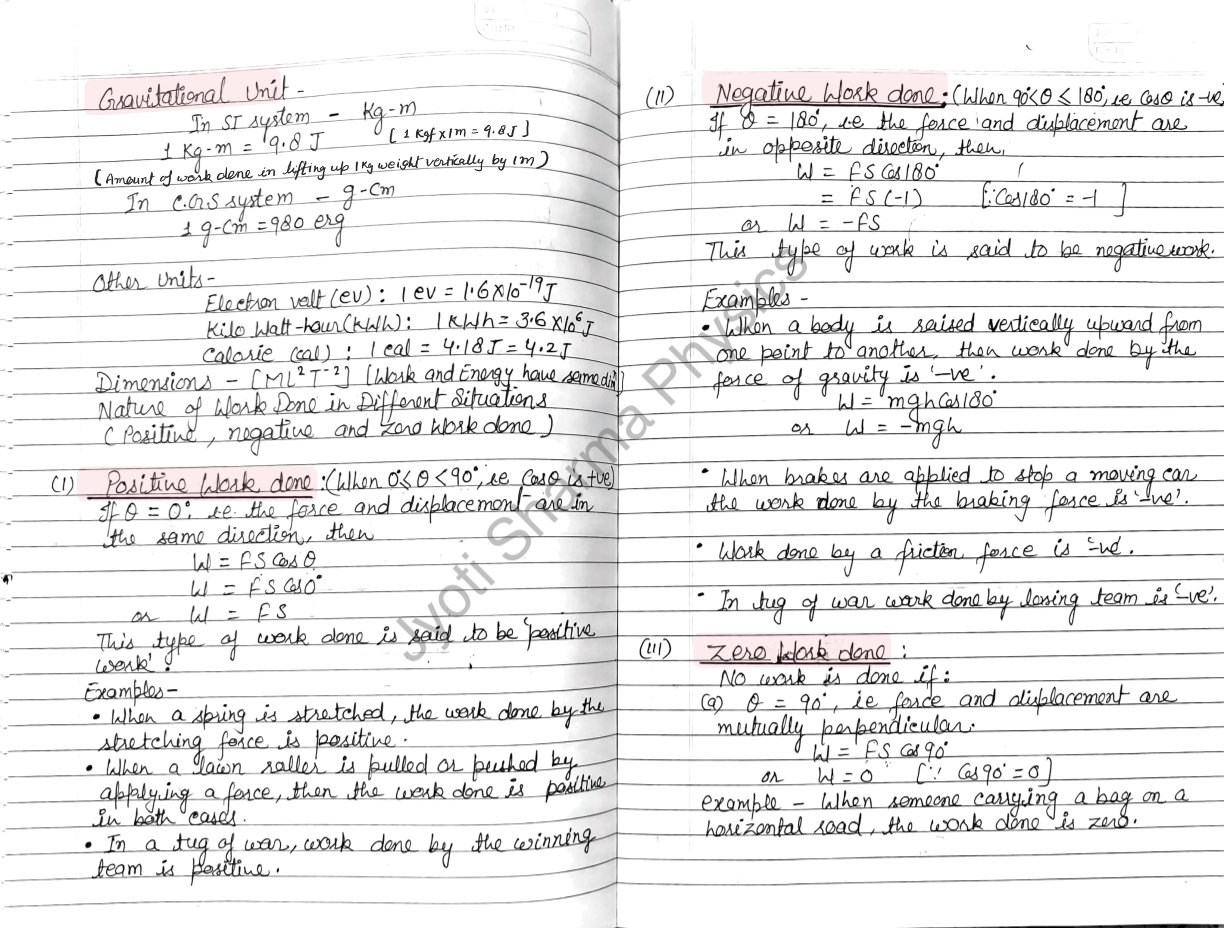 Gravitational Unit -
In SI system - Kg-m
1 Kg-m = 9.8 J [1 Kgf x 1m = 9.8 J]
(Amount of work done in lifting up 1 Kg weight vertically by 1m)
In C.G.S system - g-Cm
1 g-Cm = 980 erg
Other Units -
Electron volt (eV) : 1 eV = 1.6 X 10⁻¹⁹ J
Kilo Watt-hour (KWh) : 1 KWh = 3.6 X 10⁶ J
Calorie (Cal) : 1 Cal = 4.18 J = 4.2 J
Dimensions - [ML²T⁻²] [Work and Energy have same dim]
Nature of Work Done in Different Situations
(Positive, negative and Zero Work done)
(I) Positive Work done : (When 0° ≤ θ < 90°, ie Cosθ is +ve)
If θ = 0°, i.e. the force and displacement are in
the same direction, then
W = FS Cos θ
W = FS Cos 0°
or W = FS
This type of work done is said to be 'positive
work'.
Examples -
• When a spring is stretched, the work done by the
stretching force is positive.
• When a lawn roller is pulled or pushed by
applying a force, then the work done is positive
in both cases.
• In a tug of war, work done by the winning
team is positive.
(II) Negative Work done : (When 90° < θ ≤ 180°, i.e. Cosθ is -ve)
If θ = 180°, i.e the force and displacement are
in opposite direction, then,
W = FS Cos 180°
= FS (-1) [∵ Cos 180° = -1]
or W = -FS
This type of work is said to be negative work.
Examples -
• When a body is raised vertically upward from
one point to another, then work done by the
force of gravity is '-ve'.
W = mgh Cos 180°
or W = -mgh
• When brakes are applied to stop a moving car
the work done by the braking force is '-ve'.
• Work done by a friction force is '-ve'.
• In tug of war work done by losing team is '-ve'.
(III) Zero Work done :
No work is done if :
(a) θ = 90°, ie force and displacement are
mutually perpendicular.
W = FS Cos 90°
or W = 0 [∵ Cos 90° = 0]
example - When someone carrying a bag on a
horizontal road, the work done is zero.
Jyoti Sharma Physics